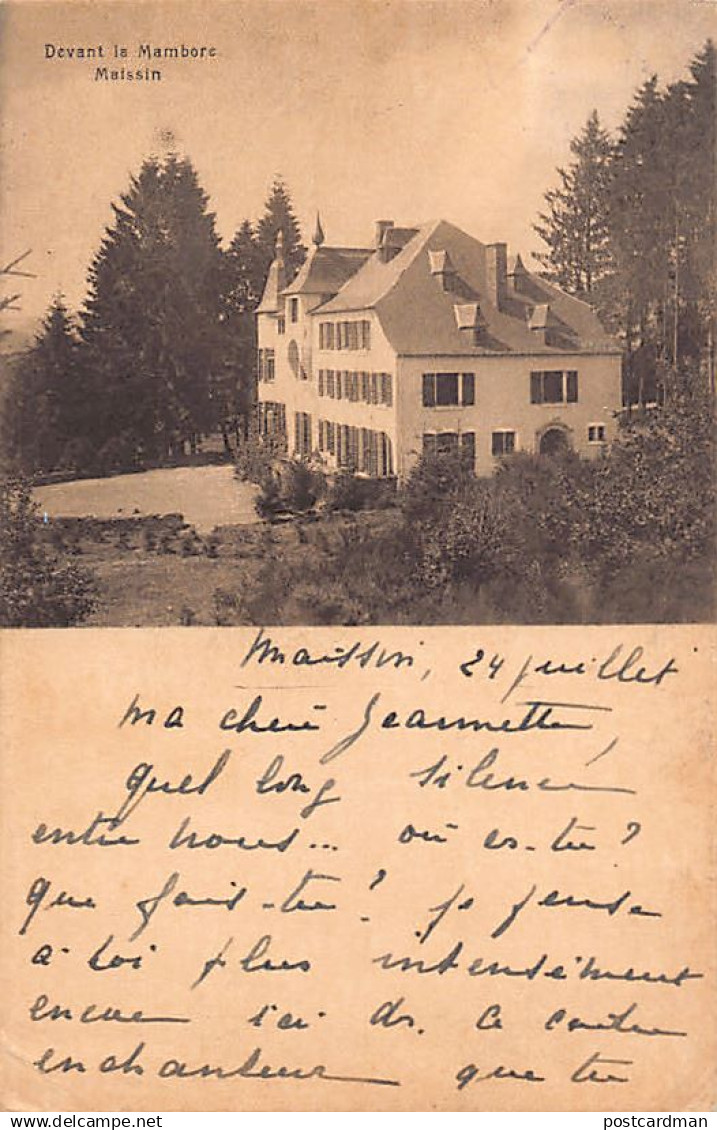 Devant la Mambore
Maissin
Maissin, 24 juillet
Ma chère Jeannette,
Quel long silence
entre nous... où es-tu?
que fais-tu? je pense
à toi plus intensément
encore ici ds. ce centre
enchanteur que tu
postcardman